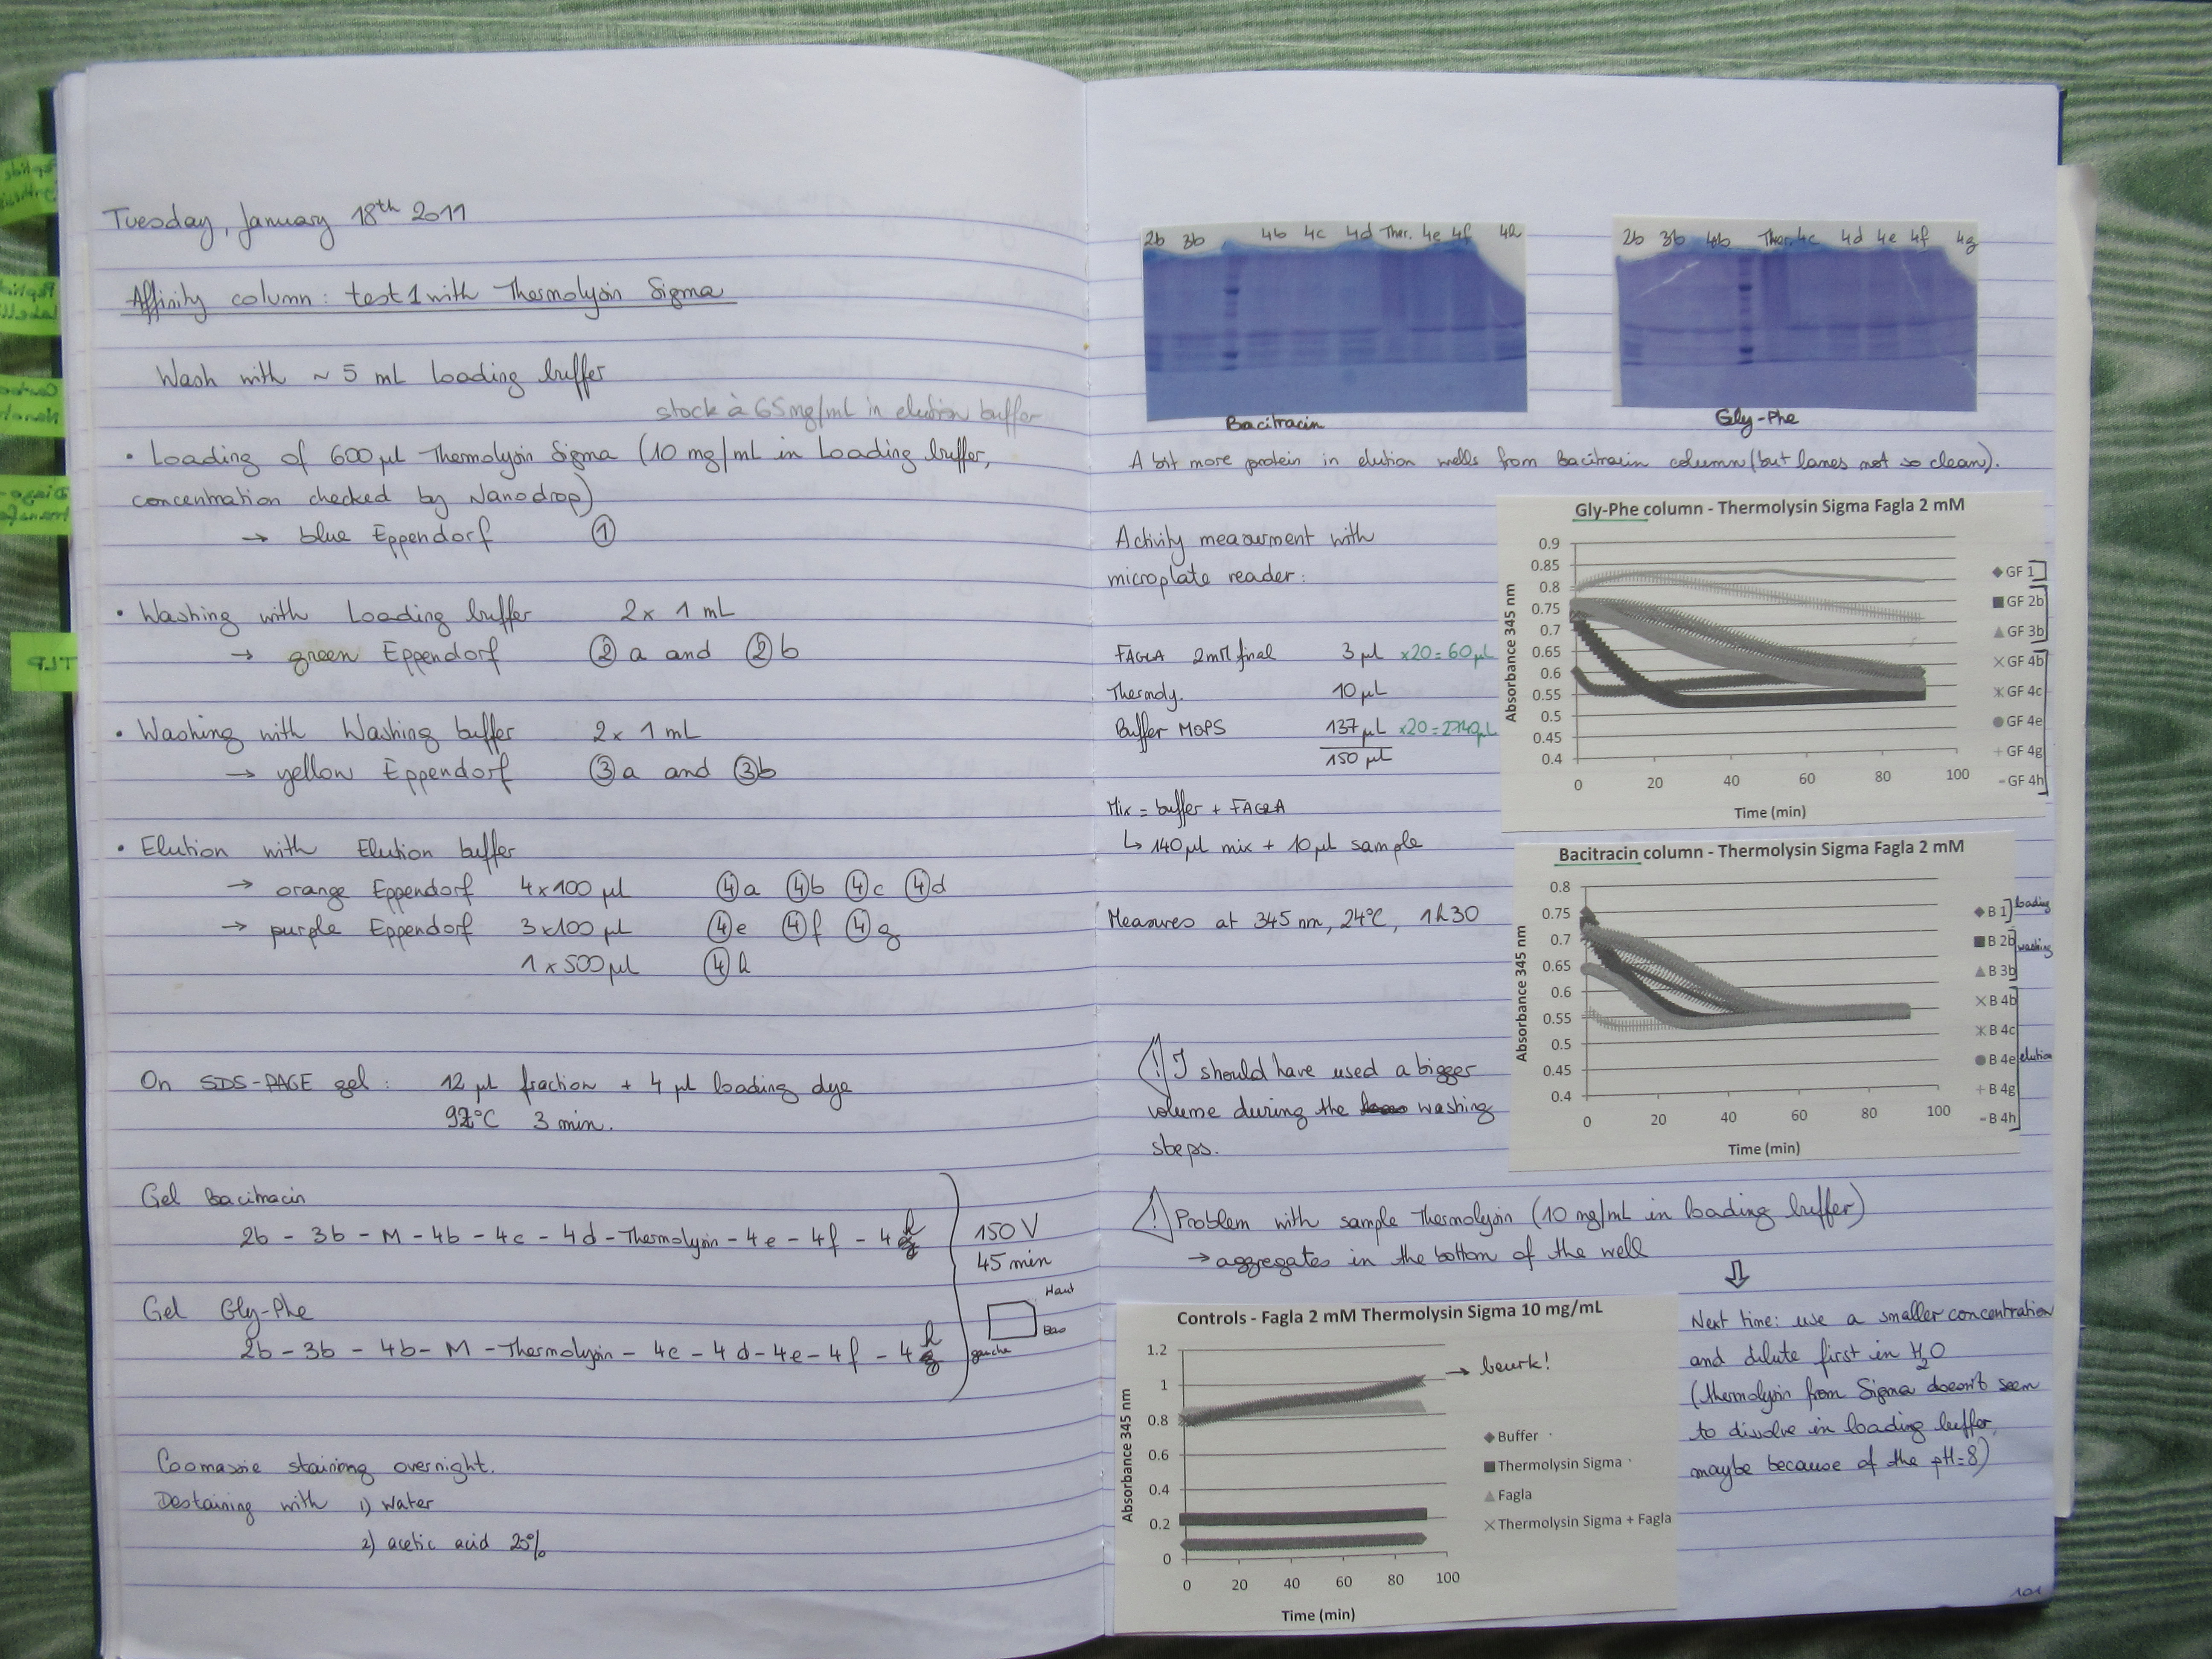 Tuesday, January 18th 2011
Affinity column : test 1 with Thermolysin Sigma
Wash with ~ 5 mL Loading buffer
stock à 65 mg/mL in elution buffer
• Loading of 600 µl Thermolysin Sigma (10 mg/mL in Loading buffer,
concentration checked by Nanodrop)
→ blue Eppendorf ①
• Washing with Loading buffer 2 x 1 mL
→ green Eppendorf ② a and ② b
• Washing with Washing buffer 2 x 1 mL
→ yellow Eppendorf ③ a and ③ b
• Elution with Elution buffer
→ orange Eppendorf 4 x 100 µl ④a ④b ④c ④d
→ purple Eppendorf 3 x 100 µl ④e ④f ④g
1 x 500 µl ④h
On SDS-PAGE gel : 12 µl fraction + 4 µl loading dye
°C 3 min.
Gel Bacitracin
2b - 3b - M - 4b - 4c - 4d - Thermolysin - 4e - 4f - 4h
Gel Gly-Phe
2b - 3b - 4b - M - Thermolysin - 4c - 4d - 4e - 4f - 4h
150 V
45 min
Haut
Bas
gauche
Coomassie staining overnight.
Destaining with 1) water
2) acetic acid 25%
TLP
2b 3b 4b 4c 4d Ther. 4e 4f 4h
Bacitracin
2b 3b 4b Ther. 4c 4d 4e 4f 4g
Gly-Phe
A bit more protein in elution wells from Bacitracin column (but lanes not so clean).
Activity measurment with
microplate reader :
FAGLA 2mM final 3 µl x20 = 60 µL
Thermoly. 10 µL
Buffer MOPS 137 µL x20 = 2740 µL
150 µl
Mix = buffer + FAGLA
↳ 140 µl mix + 10 µl sample
Measures at 345 nm, 24°C, 1h30
Gly-Phe column - Thermolysin Sigma Fagla 2 mM
Absorbance 345 nm
0.9
0.85
0.8
0.75
0.7
0.65
0.6
0.55
0.5
0.45
0.4
0 20 40 60 80 100
Time (min)
GF 1
GF 2b
GF 3b
GF 4b
GF 4c
GF 4e
GF 4g
GF 4h
Bacitracin column - Thermolysin Sigma Fagla 2 mM
Absorbance 345 nm
0.8
0.75
0.7
0.65
0.6
0.55
0.5
0.45
0.4
0 20 40 60 80 100
Time (min)
B 1 loading
B 2b washing
B 3b
B 4b
B 4c
B 4e elution
B 4g
B 4h
! I should have used a bigger
volume during the washing
steps.
! Problem with sample Thermolysin (10 mg/mL in loading buffer)
→ aggregates in the bottom of the well
⇩
Next time: use a smaller concentration
and dilute first in H2O
(thermolysin from Sigma doesn't seem
to disolve in loading buffer,
maybe because of the pH=8)
Controls - Fagla 2 mM Thermolysin Sigma 10 mg/mL
Absorbance 345 nm
1.2
1
0.8
0.6
0.4
0.2
0
0 20 40 60 80 100
Time (min)
→ beurk!
Buffer
Thermolysin Sigma
Fagla
Thermolysin Sigma + Fagla
101